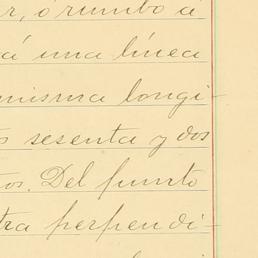 r, ó rumbo á
á una línea
misma longi-
s sesenta y dos
os. Del punto
tra perpendi-